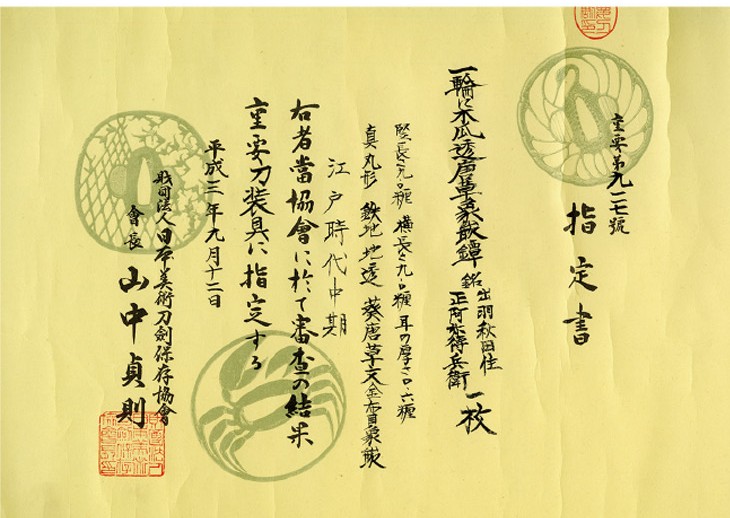 重要第九一七號
指定書
一輪に木瓜透唐草象嵌鐔 銘 出羽秋田住 正阿弥伝兵衛 一枚
竪長さ九・〇糎 横長さ九・〇糎 耳の厚さ〇・六糎
真丸形 鉄地 地透 葵唐草文金布目象嵌
江戸時代中期
右者當協會に於て審査の結果
重要刀装具に指定する
平成三年九月十二日
財団法人日本美術刀劍保存協會
會長 山中貞則